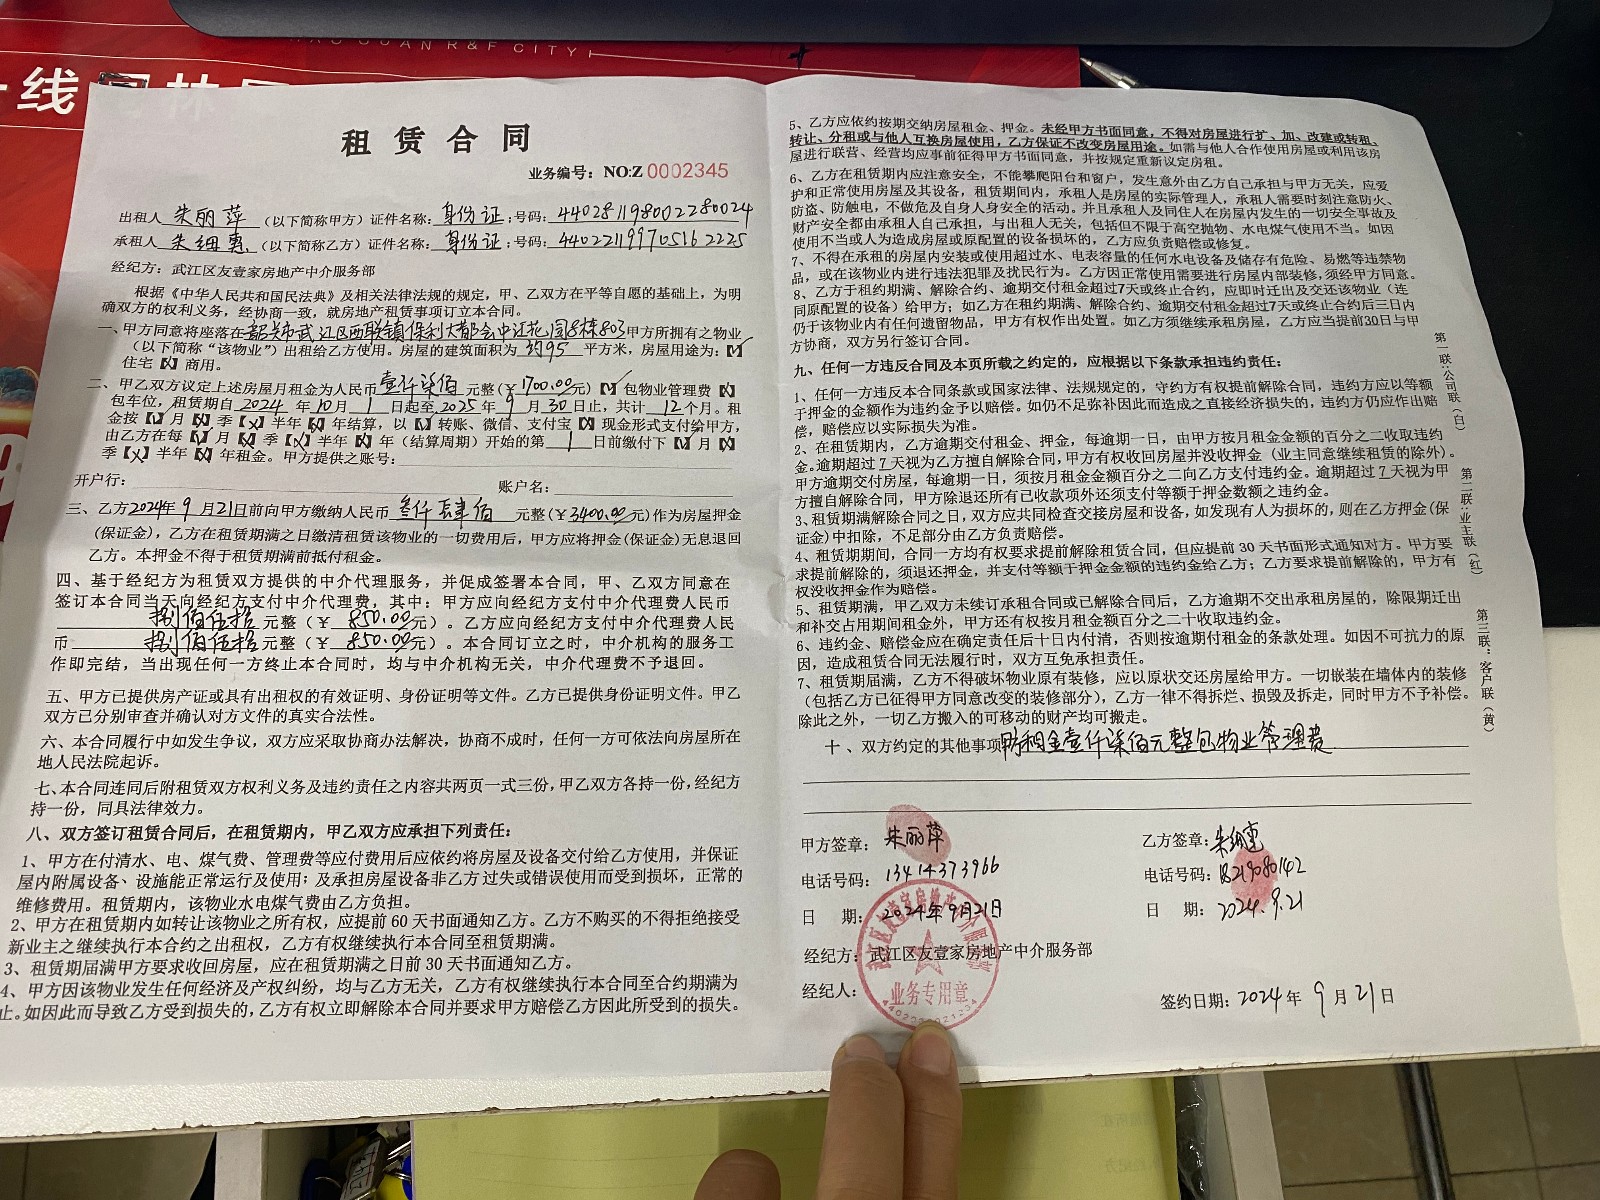 GUAN R&F CITY
线
租赁合同
业务编号：NO:Z 0002345
出租人 朱丽萍 （以下简称甲方）证件名称：身份证；号码：440281198002280024
承租人 朱细惠 （以下简称乙方）证件名称：身份证；号码：440221199705162225
经纪方：武江区友壹家房地产中介服务部
根据《中华人民共和国民法典》及相关法律法规的规定，甲、乙双方在平等自愿的基础上，为明
确双方的权利义务，经协商一致，就房地产租赁事项订立本合同。
一、甲方同意将座落在韶关市武江区西联镇保利大都会中江花园8栋803甲方所拥有之物业
（以下简称“该物业”）出租给乙方使用。房屋的建筑面积为 约95 平方米，房屋用途为：【✓】
住宅【X】商用。
二、甲乙双方议定上述房屋月租金为人民币 壹仟柒佰 元整（¥ 1700.00元）【✓】包物业管理费【X】
包车位，租赁期自 2024 年 10月 1 日起至 2025 年 9 月 30 日止，共计 12 个月。租
金按【✓】月【X】季【X】半年【X】年结算，以【✓】转账、微信、支付宝【X】现金形式支付给甲方，
由乙方在每【✓】月【X】季【X】半年【X】年（结算周期）开始的第 1 日前缴付下【✓】月【X】
季【X】半年【X】年租金。甲方提供之账号：
开户行： 账户名：
三、乙方2024年 9 月21日前向甲方缴纳人民币 叁仟肆佰 元整（¥3400.00元）作为房屋押金
（保证金），乙方在租赁期满之日缴清租赁该物业的一切费用后，甲方应将押金(保证金)无息退回
乙方。本押金不得于租赁期满前抵付租金。
四、基于经纪方为租赁双方提供的中介代理服务，并促成签署本合同，甲、乙双方同意在
签订本合同当天向经纪方支付中介代理费，其中：甲方应向经纪方支付中介代理费人民币
捌佰伍拾 元整（¥ 850.00元）。乙方应向经纪方支付中介代理费人民
币 捌佰伍拾 元整（¥ 850.00元）。本合同订立之时，中介机构的服务工
作即完结，当出现任何一方终止本合同时，均与中介机构无关，中介代理费不予退回。
五、甲方已提供房产证或具有出租权的有效证明、身份证明等文件。乙方已提供身份证明文件。甲乙
双方已分别审查并确认对方文件的真实合法性。
六、本合同履行中如发生争议，双方应采取协商办法解决，协商不成时，任何一方可依法向房屋所在
地人民法院起诉。
七、本合同连同后附租赁双方权利义务及违约责任之内容共两页一式三份，甲乙双方各持一份，经纪方
持一份，同具法律效力。
八、双方签订租赁合同后，在租赁期内，甲乙双方应承担下列责任：
1、甲方在付清水、电、煤气费、管理费等应付费用后应依约将房屋及设备交付给乙方使用，并保证
屋内附属设备、设施能正常运行及使用；及承担房屋设备非乙方过失或错误使用而受到损坏，正常的
维修费用。租赁期内，该物业水电煤气费由乙方负担。
2、甲方在租赁期内如转让该物业之所有权，应提前 60 天书面通知乙方。乙方不购买的不得拒绝接受
新业主之继续执行本合约之出租权，乙方有权继续执行本合同至租赁期满。
3、租赁期届满甲方要求收回房屋，应在租赁期满之日前 30 天书面通知乙方。
4、甲方因该物业发生任何经济及产权纠纷，均与乙方无关，乙方有权继续执行本合同至合约期满为
止。如因此而导致乙方受到损失的，乙方有权立即解除本合同并要求甲方赔偿乙方因此所受到的损失。
5、乙方应依约按期交纳房屋租金、押金。未经甲方书面同意，不得对房屋进行扩、加、改建或转租、
转让、分租或与他人互换房屋使用，乙方保证不改变房屋用途。如需与他人合作使用房屋或利用该房
屋进行联营、经营均应事前征得甲方书面同意，并按规定重新议定房租。
6、乙方在租赁期内应注意安全，不能攀爬阳台和窗户，发生意外由乙方自己承担与甲方无关，应爱
护和正常使用房屋及其设备，租赁期间内，承租人是房屋的实际管理人，承租人需要时刻注意防火、
防盗、防触电，不做危及自身人身安全的活动。并且承租人及同住人在房屋内发生的一切安全事故及
财产安全都由承租人自己承担，与出租人无关，包括但不限于高空抛物、水电煤气使用不当。如因
使用不当或人为造成房屋或原配置的设备损坏的，乙方应负责赔偿或修复。
7、不得在承租的房屋内安装或使用超过水、电表容量的任何水电设备及储存有危险、易燃等违禁物
品，或在该物业内进行违法犯罪及扰民行为。乙方因正常使用需要进行房屋内部装修，须经甲方同意。
8、乙方于租约期满、解除合约、逾期交付租金超过7天或终止合约，应即时迁出及交还该物业（连
同原配置的设备）给甲方；如乙方在租约期满、解除合约、逾期交付租金超过7天或终止合后三日内
仍于该物业内有任何遗留物品，甲方有权作出处置。如乙方须继续承租房屋，乙方应当提前30日与甲
方协商，双方另行签订合同。
九、任何一方违反合同及本页所载之约定的，应根据以下条款承担违约责任：
1、任何一方违反本合同条款或国家法律、法规规定的，守约方有权提前解除合同，违约方应以等额
于押金的金额作为违约金予以赔偿。如仍不足弥补因此而造成之直接经济损失的，违约方仍应作出赔
偿，赔偿应以实际损失为准。
2、在租赁期内，乙方逾期交付租金、押金，每逾期一日，由甲方按月租金金额的百分之二收取违约
金。逾期超过 7 天视为乙方擅自解除合同，甲方有权收回房屋并没收押金（业主同意继续租赁的除外）。
甲方逾期交付房屋，每逾期一日，须按月租金金额百分之二向乙方支付违约金。逾期超过 7 天视为甲
方擅自解除合同，甲方除退还所有已收款项外还须支付等额于押金数额之违约金。
3、租赁期满解除合同之日，双方应共同检查交接房屋和设备，如发现有人为损坏的，则在乙方押金(保
证金)中扣除，不足部分由乙方负责赔偿。
4、租赁期期间，合同一方均有权要求提前解除租赁合同，但应提前 30 天书面形式通知对方。甲方要
求提前解除的，须退还押金，并支付等额于押金金额的违约金给乙方；乙方要求提前解除的，甲方有
权没收押金作为赔偿。
5、租赁期满，甲乙双方未续订承租合同或已解除合同后，乙方逾期不交出承租房屋的，除限期迁出
和补交占用期间租金外，甲方还有权按月租金额百分之二十收取违约金。
6、违约金、赔偿金应在确定责任后十日内付清，否则按逾期付租金的条款处理。如因不可抗力的原
因，造成租赁合同无法履行时，双方互免承担责任。
7、租赁期届满，乙方不得破坏物业原有装修，应以原状交还房屋给甲方。一切嵌装在墙体内的装修
（包括乙方已征得甲方同意改变的装修部分），乙方一律不得拆烂、损毁及拆走，同时甲方不予补偿。
除此之外，一切乙方搬入的可移动的财产均可搬走。
十、双方约定的其他事项 月租金壹仟柒佰元整包物业管理费
甲方签章：朱丽萍
电话号码：13414373966
日 期：2024年9月21日
乙方签章：朱细惠
电话号码：18219080142
日 期：2024.9.21
经纪方：武江区友壹家房地产中介服务部
经纪人：
签约日期：2024 年 9 月 21 日
武江区友壹家房地产中介服务部
业务专用章
第一联：公司联（白）
第二联：业主联（红）
第三联：客户联（黄）